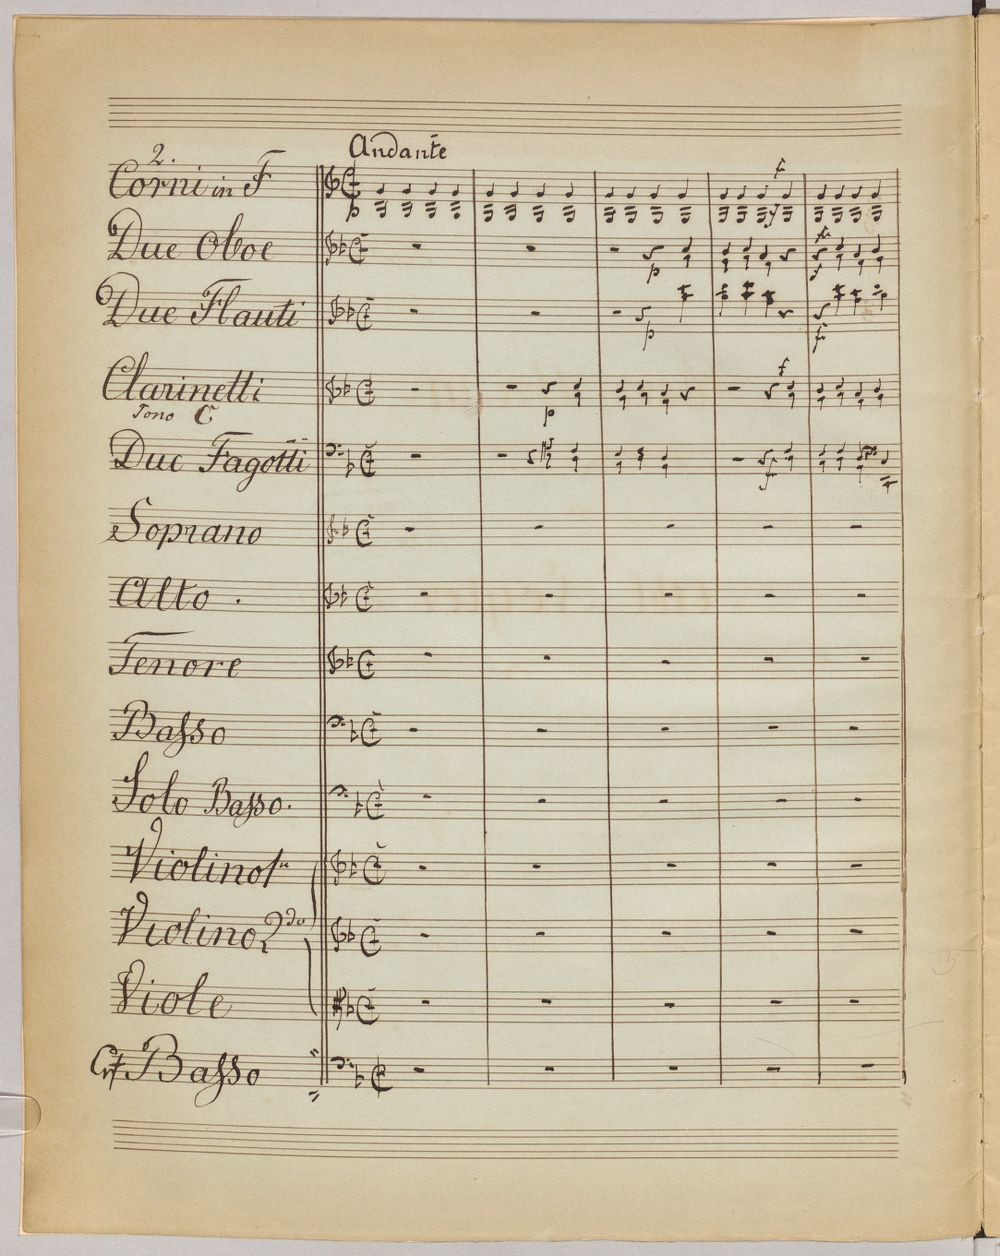 Andante
2.
Corni in F
p
f
f
Due Oboe
p
f
f
Due Flauti
p
f
Clarinetti
Tono C
p
f
Due Fagotti
f
Soprano
Alto .
Tenore
Basso
Solo Basso.
Violino 1
Violino 2do
Viole
Basso